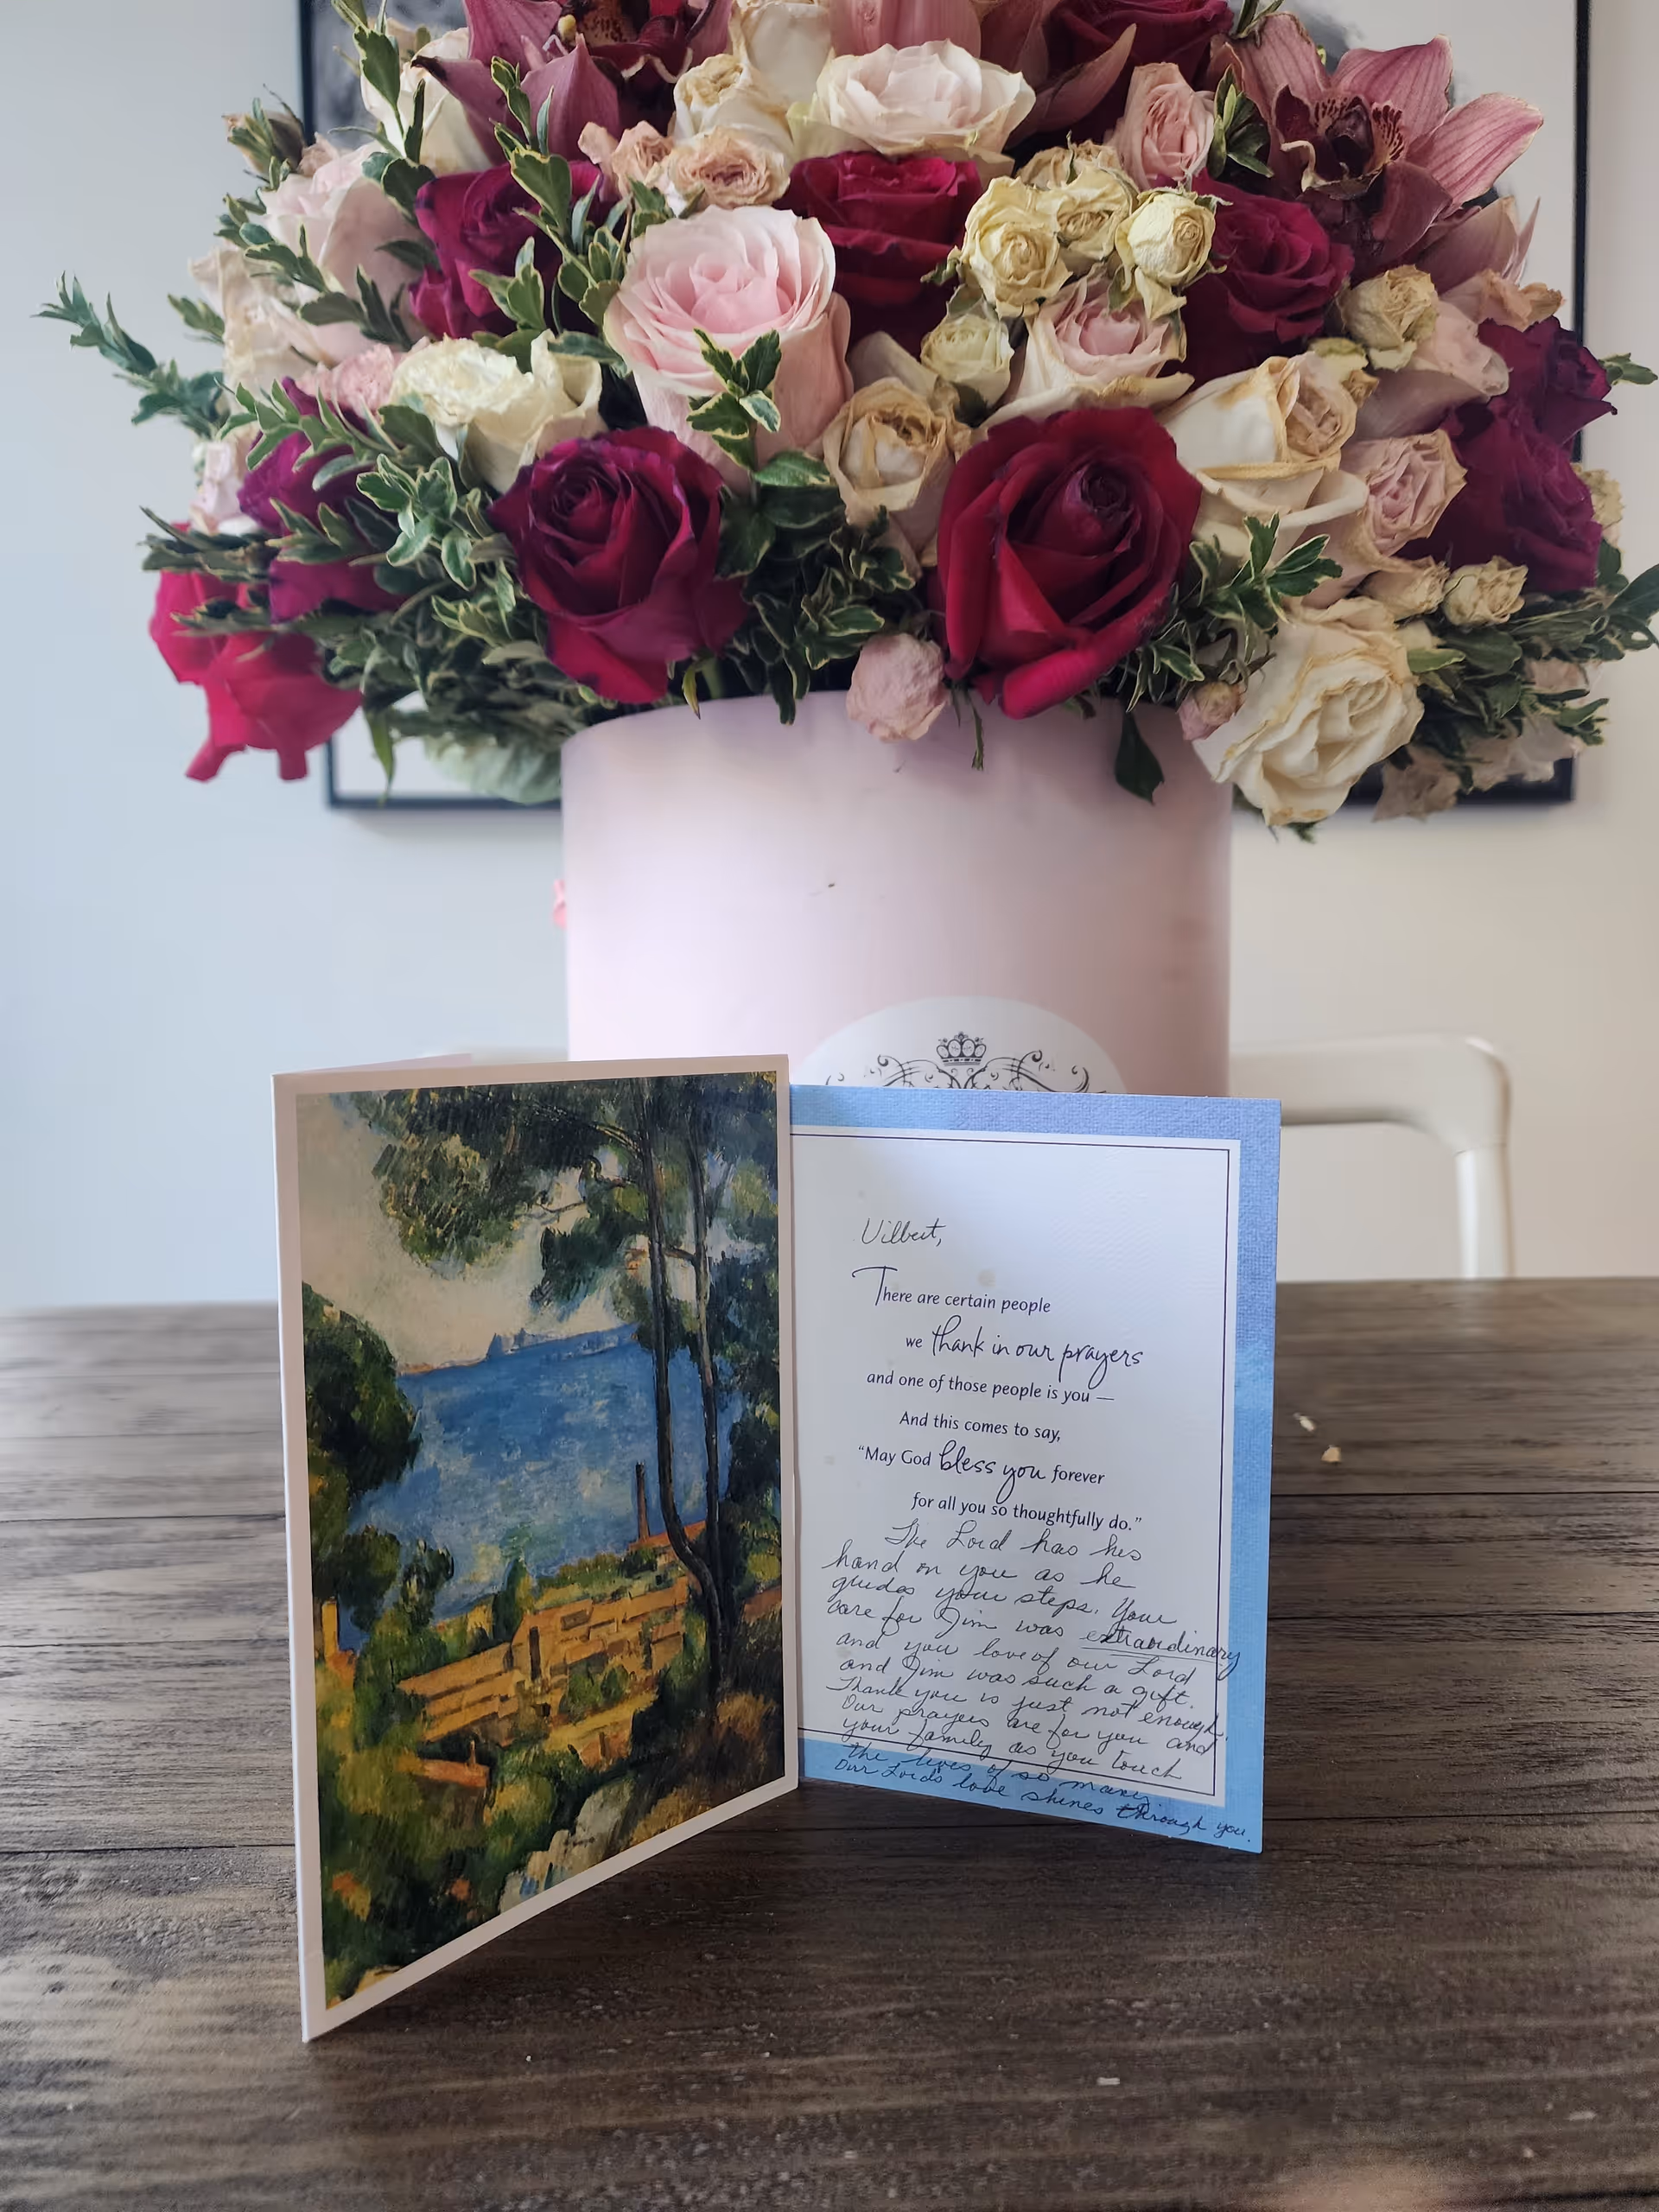 Vilbert,
There are certain people
we thank in our prayers
and one of those people is you —
And this comes to say,
“May God bless you forever
for all you so thoughtfully do.”
The Lord has his
hand on you as he
guides your steps. Your
care for Jim was extraordinary
and you love of our Lord
and Jim was such a gift.
Thank you is just not enough.
Our prayers are for you and
your family as you touch
the lives of so many.
Our Lord's love shines through you.